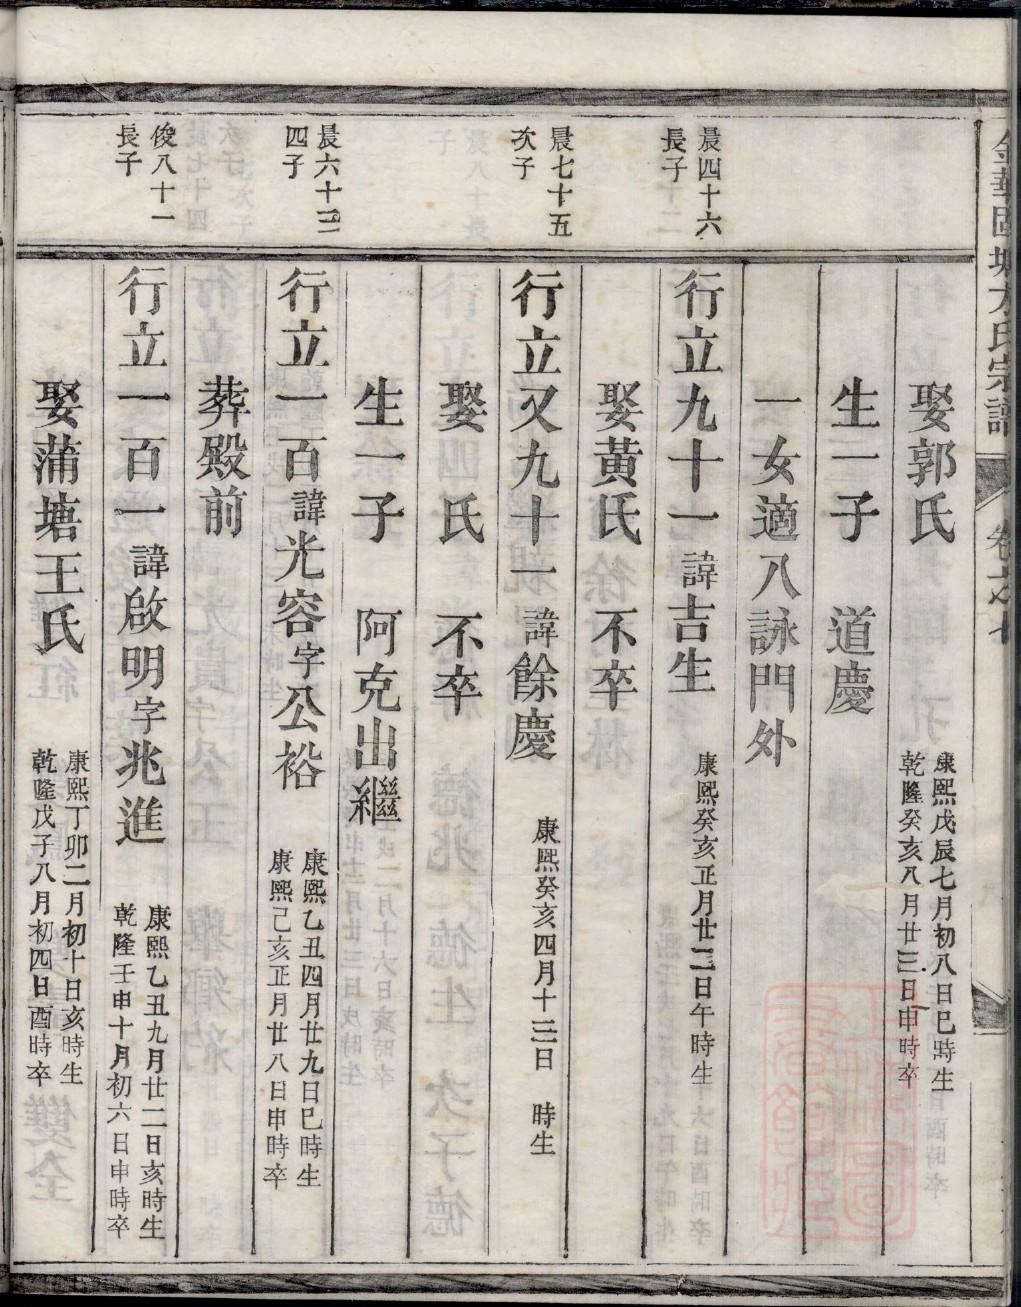 金華國塘方氏宗譜
娶郭氏
康熙戊辰七月初八日巳時生
乾隆癸亥八月廿三日申時卒
生一子　道慶
一女適八詠門外
晨四十六
長子
行立九十一諱吉生
康熙癸亥正月廿二日午時生
娶黃氏　不卒
晨七十五
次子
行立又九十一諱餘慶
康熙癸亥四月十三日　時生
娶　氏　不卒
生一子　阿克出繼
晨六十三
四子
行立一百諱光容字公裕
康熙乙丑四月廿九日巳時生
康熙己亥正月廿八日申時卒
葬殿前
俊八十一
長子
行立一百一諱啟明字兆進
康熙乙丑九月廿二日亥時生
乾隆壬申十月初六日申時卒
娶蒲塘王氏
康熙丁卯二月初十日亥時生
乾隆戊子八月初四日酉時卒